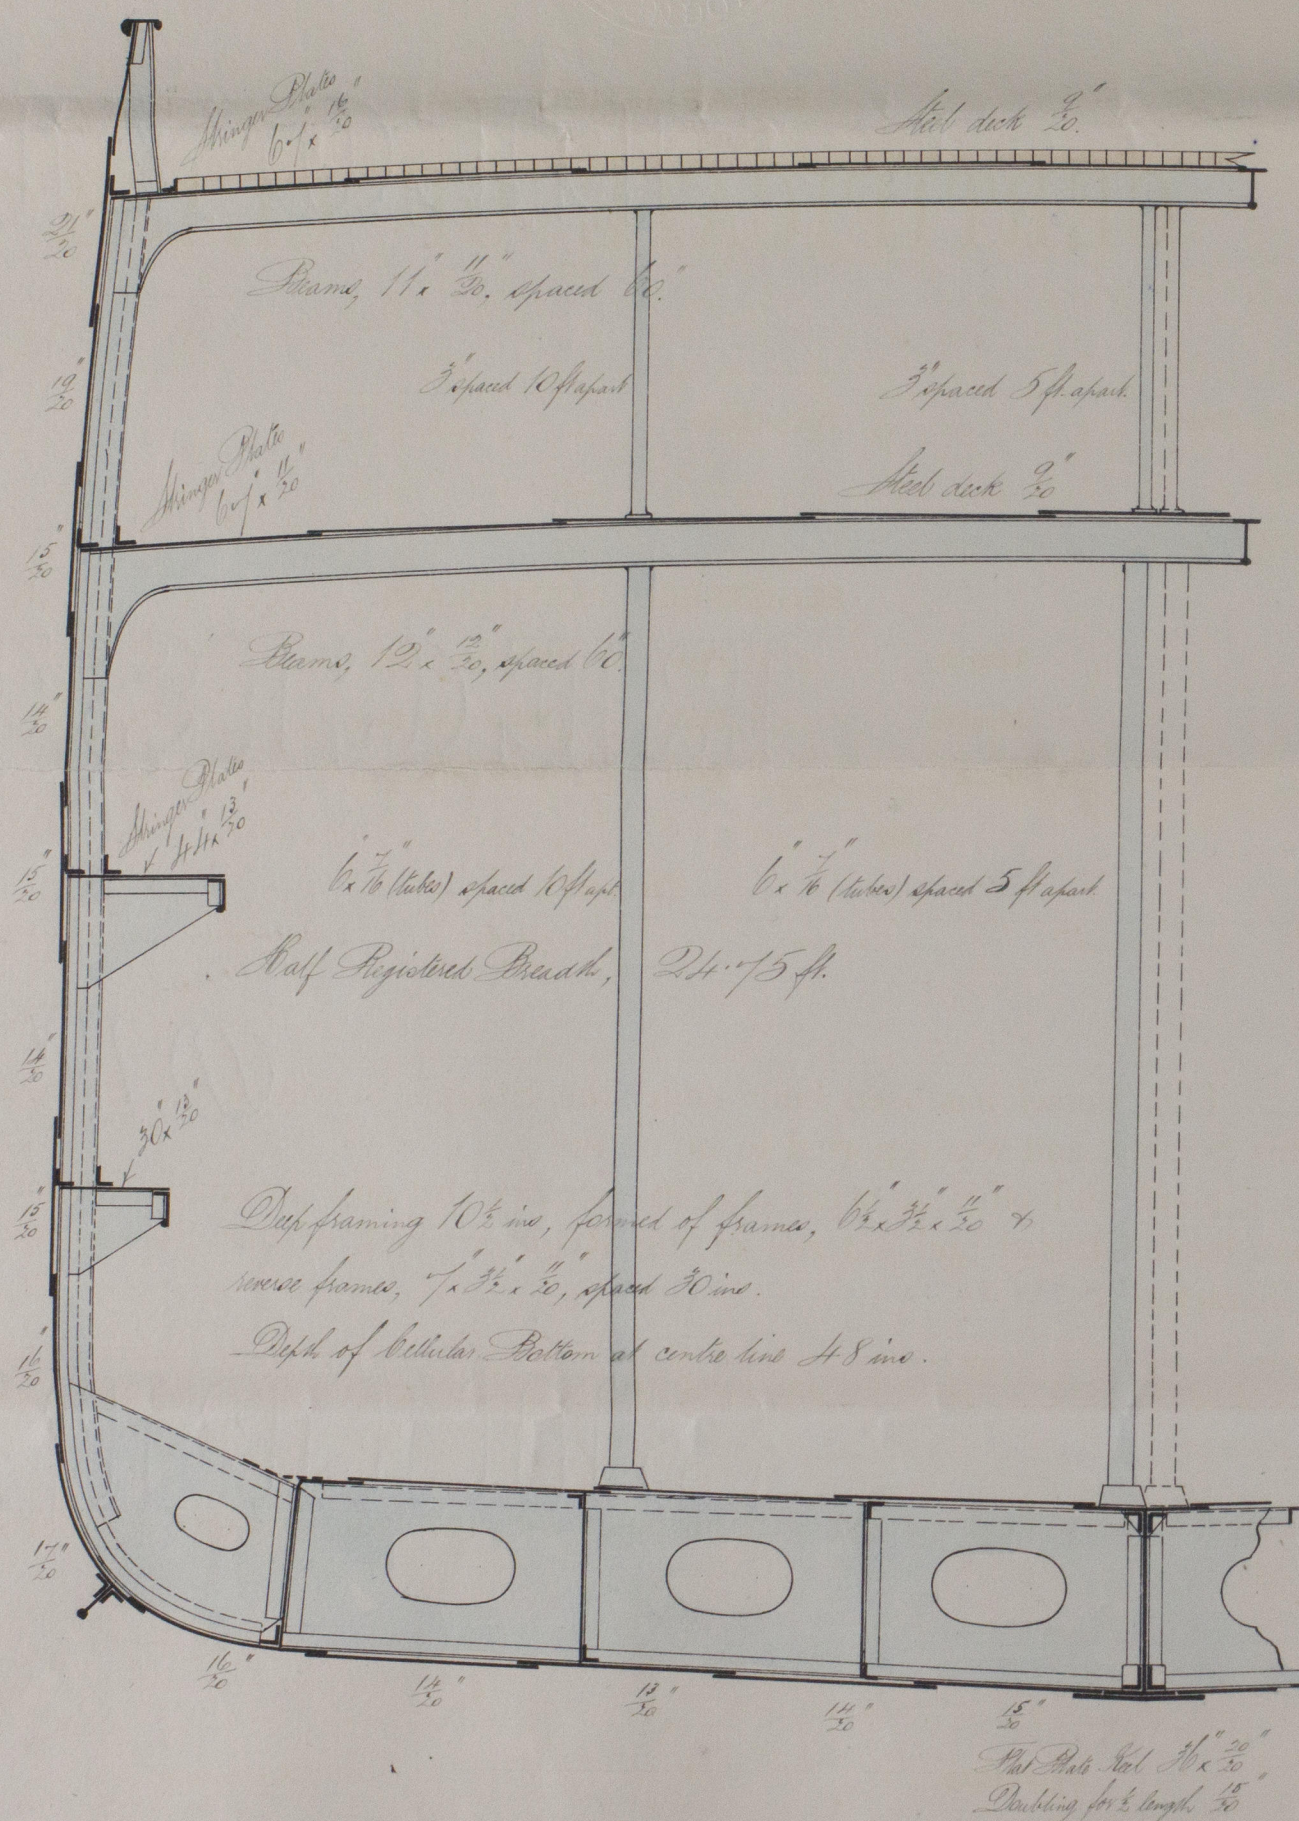 Stringer Plates
67" x 16/20"
Steel deck 9/20"
21/20"
Beams, 11" x 11/20", spaced 60"
19/20"
3" spaced 10 ft apart
3" spaced 5 ft. apart.
Stringer Plates
67" x 11/20"
Steel deck 9/20"
15/20"
Beams, 12" x 12/20", spaced 60"
14/20"
Stringer Plates
44" x 13/20"
15/20"
6" x 7/16" (tubes) spaced 10 ft apt.
6" x 7/16" (tubes) spaced 5 ft apart.
Half Registered Breadth, 24.75 ft.
14/20"
30" x 13/20"
15/20"
Deep framing 10 1/2 ins, formed of frames, 6 1/2" x 3 1/2" x 11/20" &
reverse frames, 7" x 3 1/2" x 11/20", spaced 30 ins.
Depth of Cellular Bottom at centre line 48 ins.
16/20"
17/20"
16/20"
14/20"
13/20"
14/20"
15/20"
Flat Plate Keel 36" x 20/20"
Doubling for 1/2 length 15/20"